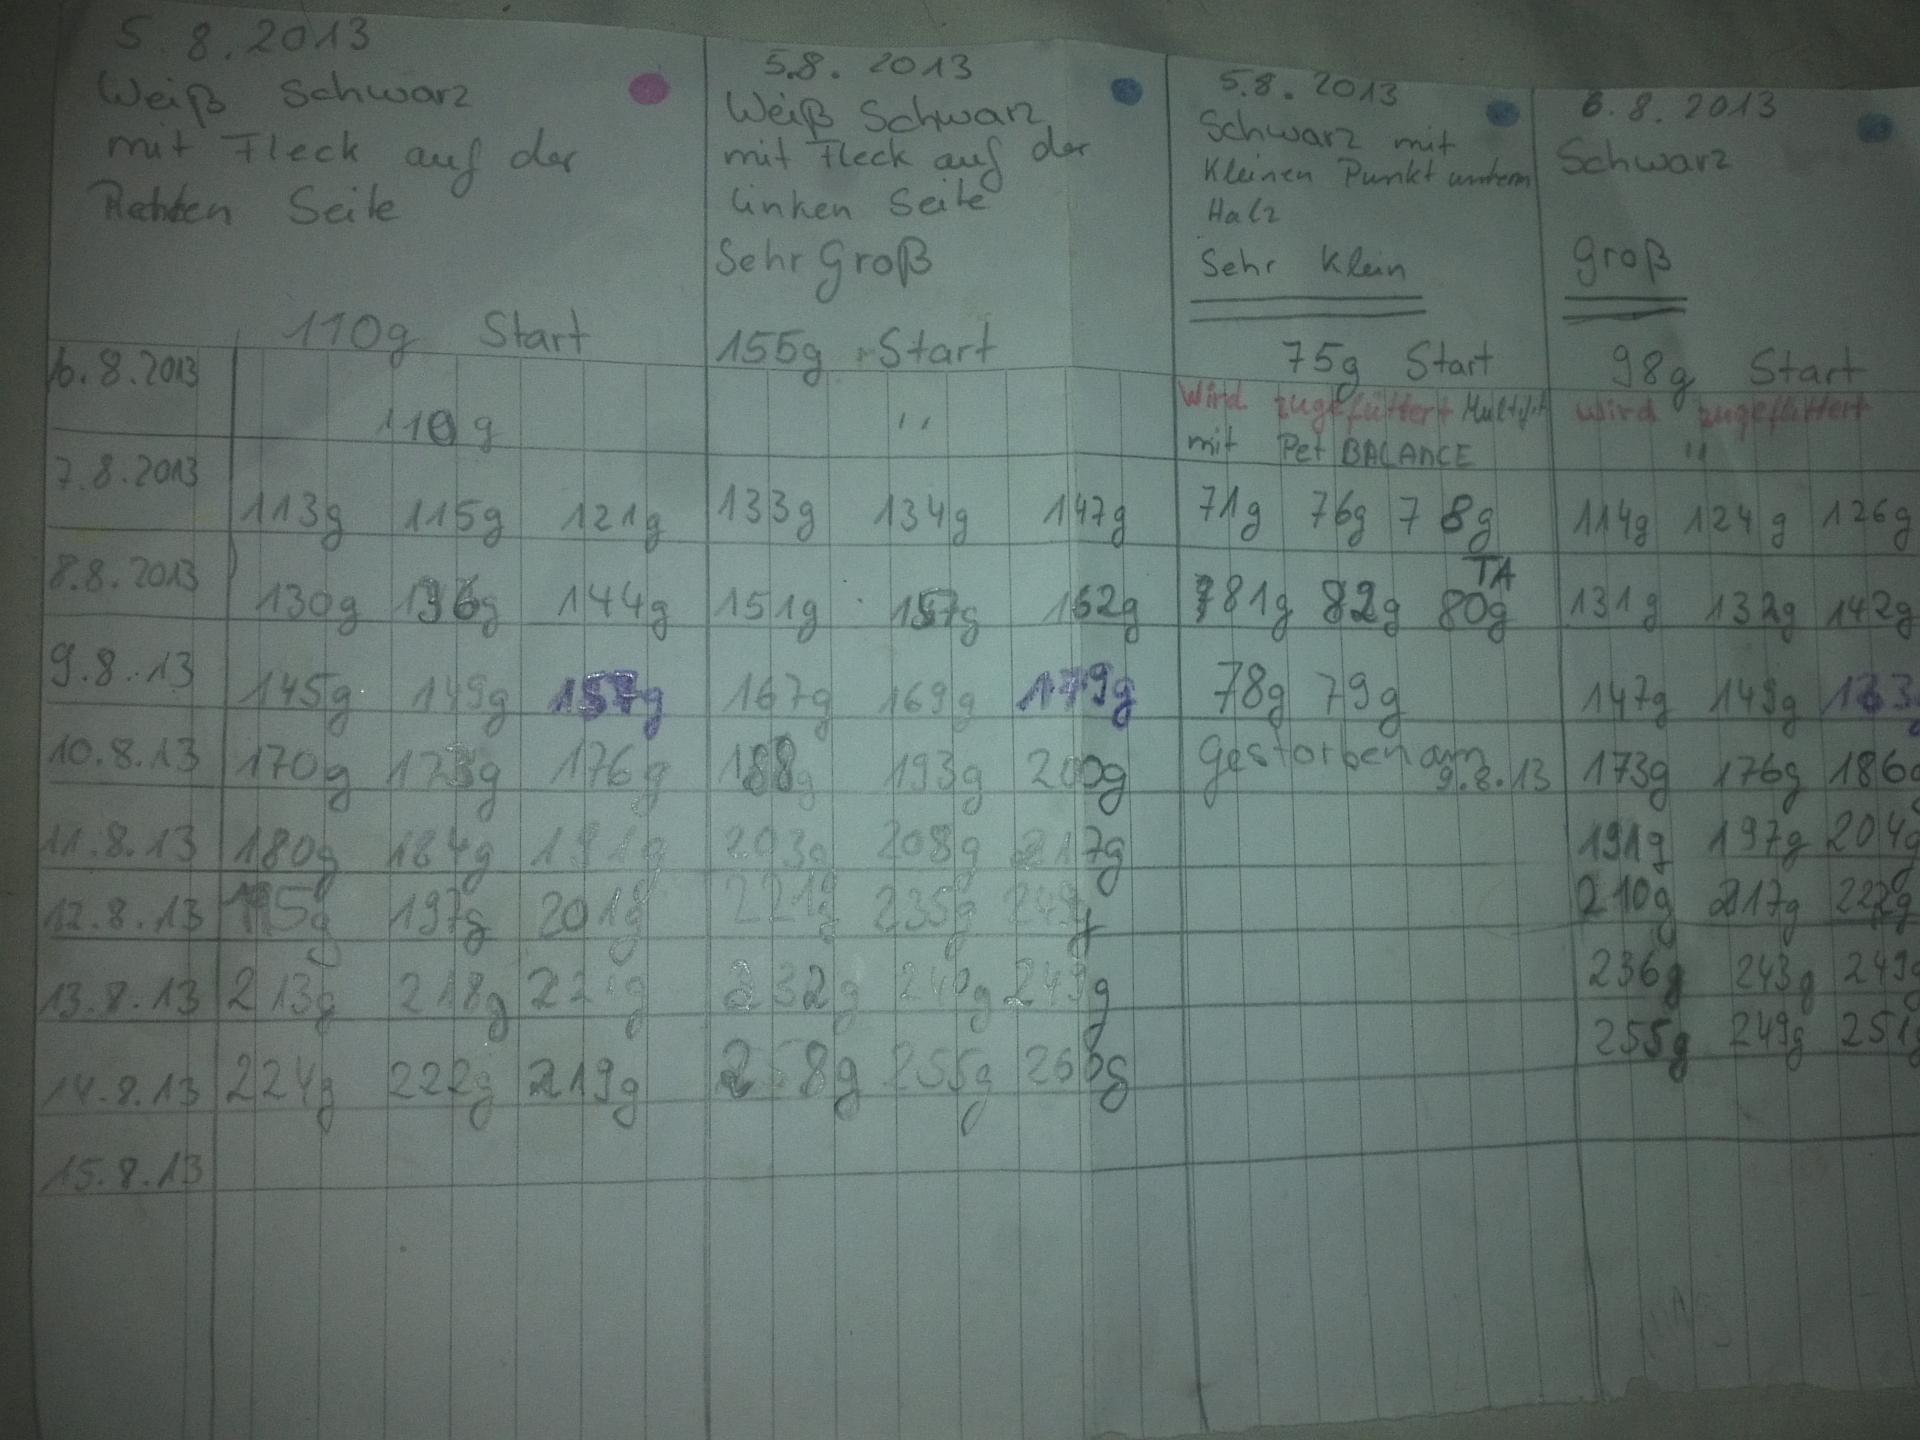 5.8.2013
Weiß Schwarz
mit Fleck auf der
Rechten Seite
110g Start
5.8. 2013
Weiß Schwarz
mit Fleck auf der
linken Seite
Sehr Groß
155g Start
5.8.2013
Schwarz mit
Kleinen Punkt unterm
Halz
Sehr Klein
75g Start
6.8.2013
Schwarz
groß
98g Start
6.8.2013 110g " wird zugefüttert wird zugefüttert
mit Pet BALANCE "
7.8.2013 113g 115g 121g 133g 134g 147g 71g 76g 78g 114g 124g 126g
TA
8.8.2013 130g 136g 144g 151g 157g 162g 81g 82g 80g 131g 132g 142g
9.8.13 145g 149g 157g 167g 169g 179g 78g 79g 147g 149g
10.8.13 170g 176g 188g 193g 200g Gestorben am 173g 176g 186g
9.8.13
11.8.13 180g 184g 191g 203g 208g 217g 191g 197g 204g
12.8.13 197g 201g 221g 235g 210g 217g 222g
13.8.13 213g 218g 232g 240g 249g 236g 243g 249g
14.8.13 224g 222g 219g 258g 255g 255g 249g 251g
15.8.13